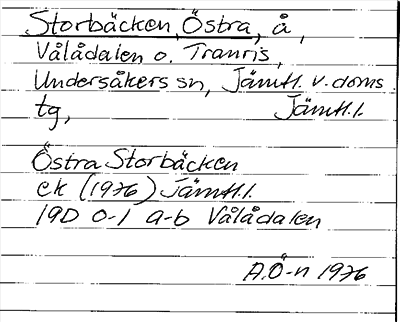 Storbäcken, Östra, å,
Vålådalen o. Tranris,
Undersåkers sn, Jämtl. v. doms.
tg, Jämtl.l.
Östra Storbäcken
ek (1976) Jämtl.l.
19D 0-1 a-b Vålådalen
A.Ö-n 1976